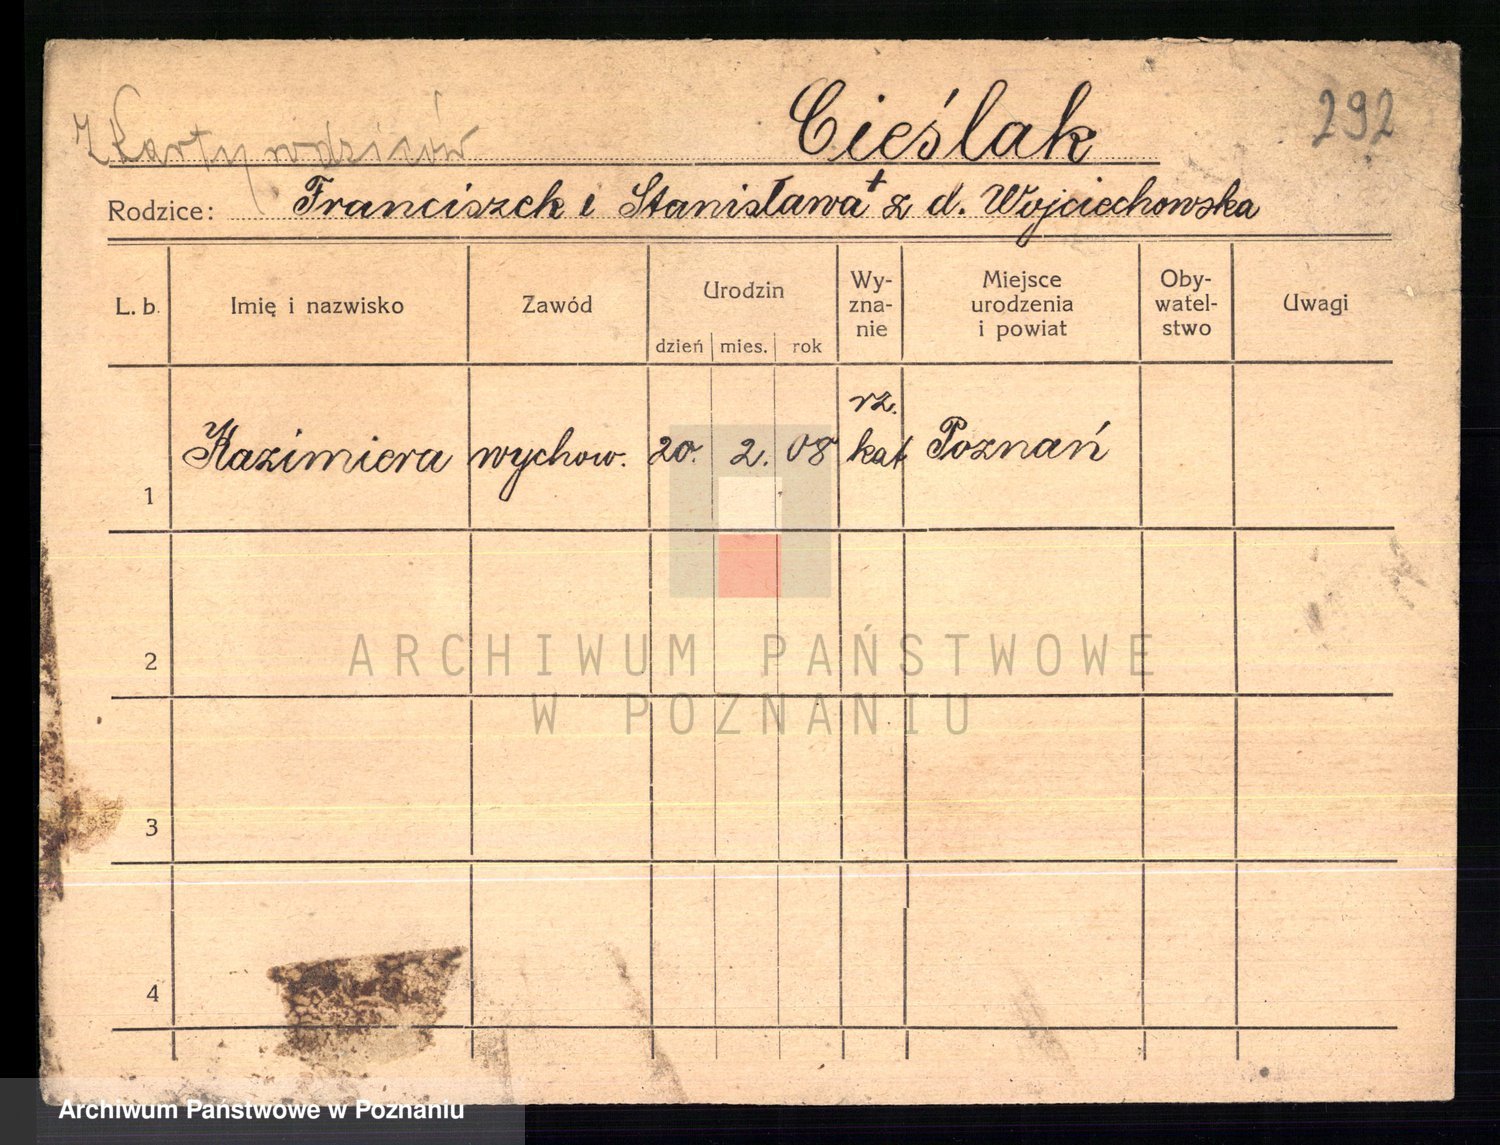 Z Karty rodziców Cieślak 292
Rodzice: Franciszek i Stanisława + z d. Wojciechowska
L. b. Imię i nazwisko Zawód Urodzin dzień mies. rok Wy-zna-nie Miejsce urodzenia i powiat Oby-watel-stwo Uwagi
1 Kazimiera wychow. 20. 2. 08 rz. kat Poznań
2
ARCHIWUM PAŃSTWOWE
W POZNANIU
3
4
Archiwum Państwowe w Poznaniu